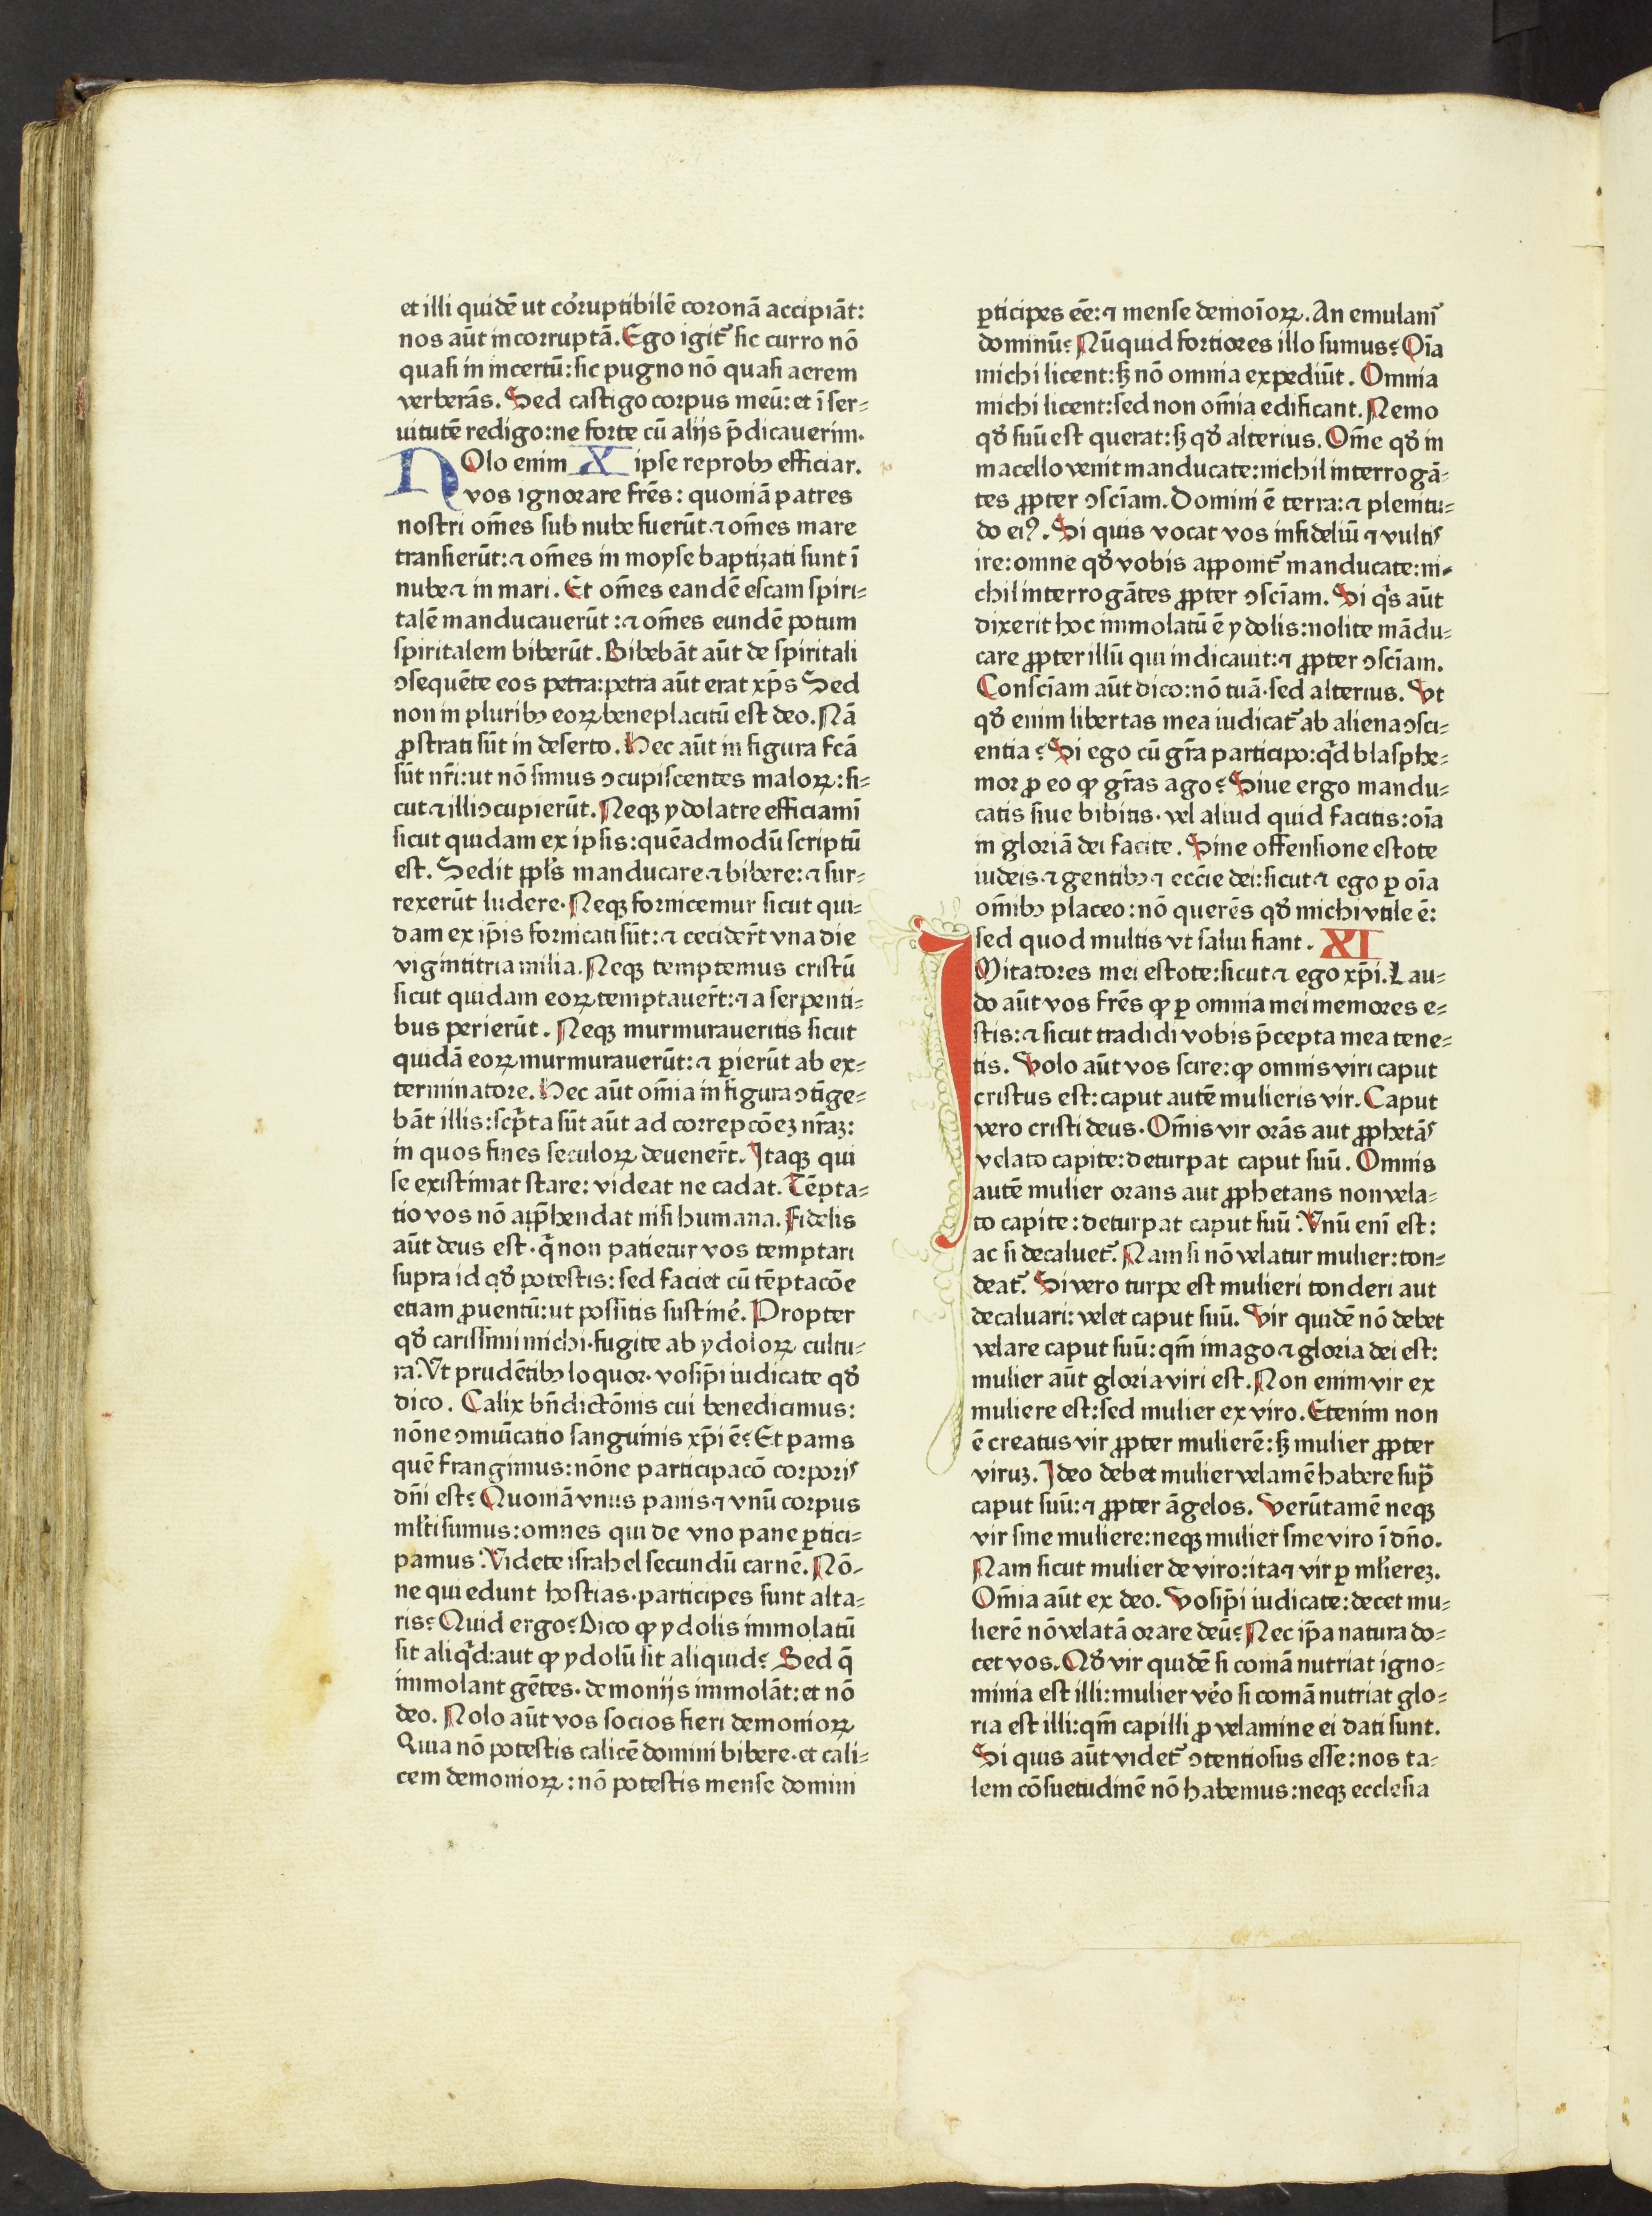 et illi quidē ut cōruptibilē coronā accipiāt:
nos aūt incorruptā. Ego igit᷑ sic curro nō
quasi in incertū: sic pugno nō quasi aerem
verberās. Sed castigo corpus meū: et ī ser⸗
uitutē redigo: ne forte cū alijs p̄dicauerim.
NOlo enim X ipse reprobꝰ efficiar.
vos ignorare fr̄es: quoniā patres
nostri om̄es sub nube fuerūt ⁊ om̄es mare
transierūt: ⁊ om̄es in moyse baptizati sunt ī
nube ⁊ in mari. Et om̄es eandē escam spiri⸗
talē manducauerūt: ⁊ om̄es eundē potum
spiritalem biberūt. Bibebāt aūt de spiritali
ꝯsequēte eos petra: petra aūt erat xp̄s Sed
non in pluribꝰ eoꝝ beneplacitū est deo. Nā
ꝓstrati sūt in deserto. Hec aūt in figura fcā
sūt nr̄i: ut nō simus ꝯcupiscentes maloꝝ: si⸗
cut ⁊ illi ꝯcupierūt. Neqꝫ ydolatre efficiamī
sicut quidam ex ipsis: quēadmodū scriptū
est. Sedit ppl̄s manducare ⁊ bibere: ⁊ sur⸗
rexerūt ludere. Neqꝫ fornicemur sicut qui⸗
dam ex ip̄is fornicati sūt: ⁊ cecider̄t vna die
vigintitria milia. Neqꝫ temptemus cristū
sicut quidam eoꝝ temptauer̄t: ⁊ a serpenti⸗
bus perierūt. Neqꝫ murmuraueritis sicut
quidā eoꝝ murmurauerūt: ⁊ ꝑierūt ab ex⸗
terminatore. Hec aūt om̄ia in figura ꝯtīge⸗
bāt illis: scp̄ta sūt aūt ad correpcōeꝫ nr̄aꝫ:
in quos fines seculoꝝ deuener̄t. Itaqꝫ qui
se existimat stare: videat ne cadat. Tēpta⸗
tio vos nō app̄hendat nisi humana. Fidelis
aūt deus est. q̄ non patietur vos temptari
supra id qd̄ potestis: sed faciet cū tēptacōe
etiam ꝓuentū: ut possitis sustinē. Propter
qd̄ carissimi michi. fugite ab ydoloꝝ cultu⸗
ra. Vt prudētibꝰ loquor. vosip̄i iudicate qd̄
dico. Calix bn̄dictōnis cui benedicimus:
nōne ꝯmuīcatio sanguinis xp̄i ē? Et panis
quē frangimus: nōne participacō corporis
dn̄i est? Quoniā vnus panis ⁊ vnū corpus
ml̄ti sumus: omnes qui de vno pane ꝑtici⸗
pamus. Videte israhel secundū carnē. Nō⸗
ne qui edunt hostias. participes sunt alta⸗
ris? Quid ergo? Dico ꝙ ydolis immolatū
sit aliqd̄: aut ꝙ ydolū sit aliquid? Sed q̄
immolant gētes. demonijs immolāt: et nō
deo. Nolo aūt vos socios fieri demonioꝝ
Quia nō potestis calicē domini bibere. et cali⸗
cem demonioꝝ: nō potestis mense domini
ꝑticipes eē: ⁊ mense demoīoꝝ. An emulam᷑
dominū? Nūquid fortiores illo sumus? Oīa
michi licent: sꝫ nō omnia expediūt. Omnia
michi licent: sed non om̄ia edificant. Nemo
qd̄ suū est querat: sꝫ qd̄ alterius. Om̄e qd̄ in
macello venit manducate: nichil interrogā⸗
tes ꝓpter ꝯscīam. Domini ē terra: ⁊ plenitu⸗
do eiꝰ. Si quis vocat vos infideliū ⁊ vultis
ire: omne qd̄ vobis apponit᷑ manducate: ni⸗
chil interrogātes ꝓpter ꝯscīam. Si q̄s aūt
dixerit hoc immolatū ē ydolis: nolite mādu⸗
care ꝓpter illū qui indicauit: ⁊ ꝓpter ꝯscīam.
Conscīam aūt dico: nō tuā. sed alterius. Vt
qd̄ enim libertas mea iudicat᷑ ab aliena ꝯsci⸗
entia? Si ego cū gr̄a participo: qd̄ blasphe⸗
mor ꝓ eo ꝙ gr̄as ago? Siue ergo mandu⸗
catis siue bibitis. vel aliud quid facitis: oīa
in gloriā dei facite. Sine offensione estote
iudeis ⁊ gentibꝰ ⁊ eccīe dei: sicut ⁊ ego ꝑ oīa
om̄ibꝰ placeo: nō querēs qd̄ michi vtile ē:
sed quod multis vt salui fiant. XI
IMitatores mei estote: sicut ⁊ ego xp̄i. Lau⸗
do aūt vos fr̄es ꝙ ꝑ omnia mei memores e⸗
stis: ⁊ sicut tradidi vobis p̄cepta mea tene⸗
tis. Volo aūt vos scire: ꝙ omnis viri caput
cristus est: caput autē mulieris vir. Caput
vero cristi deus. Om̄is vir orās aut ꝓphetās
velato capite: deturpat caput suū. Omnis
autē mulier orans aut ꝓphetans non vela⸗
to capite: deturpat caput suū. Vnū eni᷑ est:
ac si decaluet᷑. Nam si nō velatur mulier: ton⸗
deat᷑. Si vero turpe est mulieri tonderi aut
decaluari: velet caput suū. Vir quidē nō debet
velare caput suū: qm̄ imago ⁊ gloria dei est:
mulier aūt gloria viri est. Non enim vir ex
muliere est: sed mulier ex viro. Etenim non
ē creatus vir ꝓpter mulierē: sꝫ mulier ꝓpter
viruꝫ. Ideo debet mulier velamē habere sup̄
caput suū: ⁊ ꝓpter āgelos. Verūtamē neqꝫ
vir sine muliere: neqꝫ mulier sine viro ī dn̄o.
Nam sicut mulier de viro: ita ⁊ vir ꝑ ml̄iereꝫ.
Om̄ia aūt ex deo. Vosip̄i iudicate: decet mu⸗
lierē nō velatā orare deū? Nec ip̄a natura do⸗
cet vos. Qd̄ vir quidē si comā nutriat igno⸗
minia est illi: mulier vēo si comā nutriat glo⸗
ria est illi: qm̄ capilli ꝓ velamine ei dati sunt.
Si quis aūt videt᷑ ꝯtentiosus esse: nos ta⸗
lem cōsuetudinē nō habemus: neqꝫ ecclesia